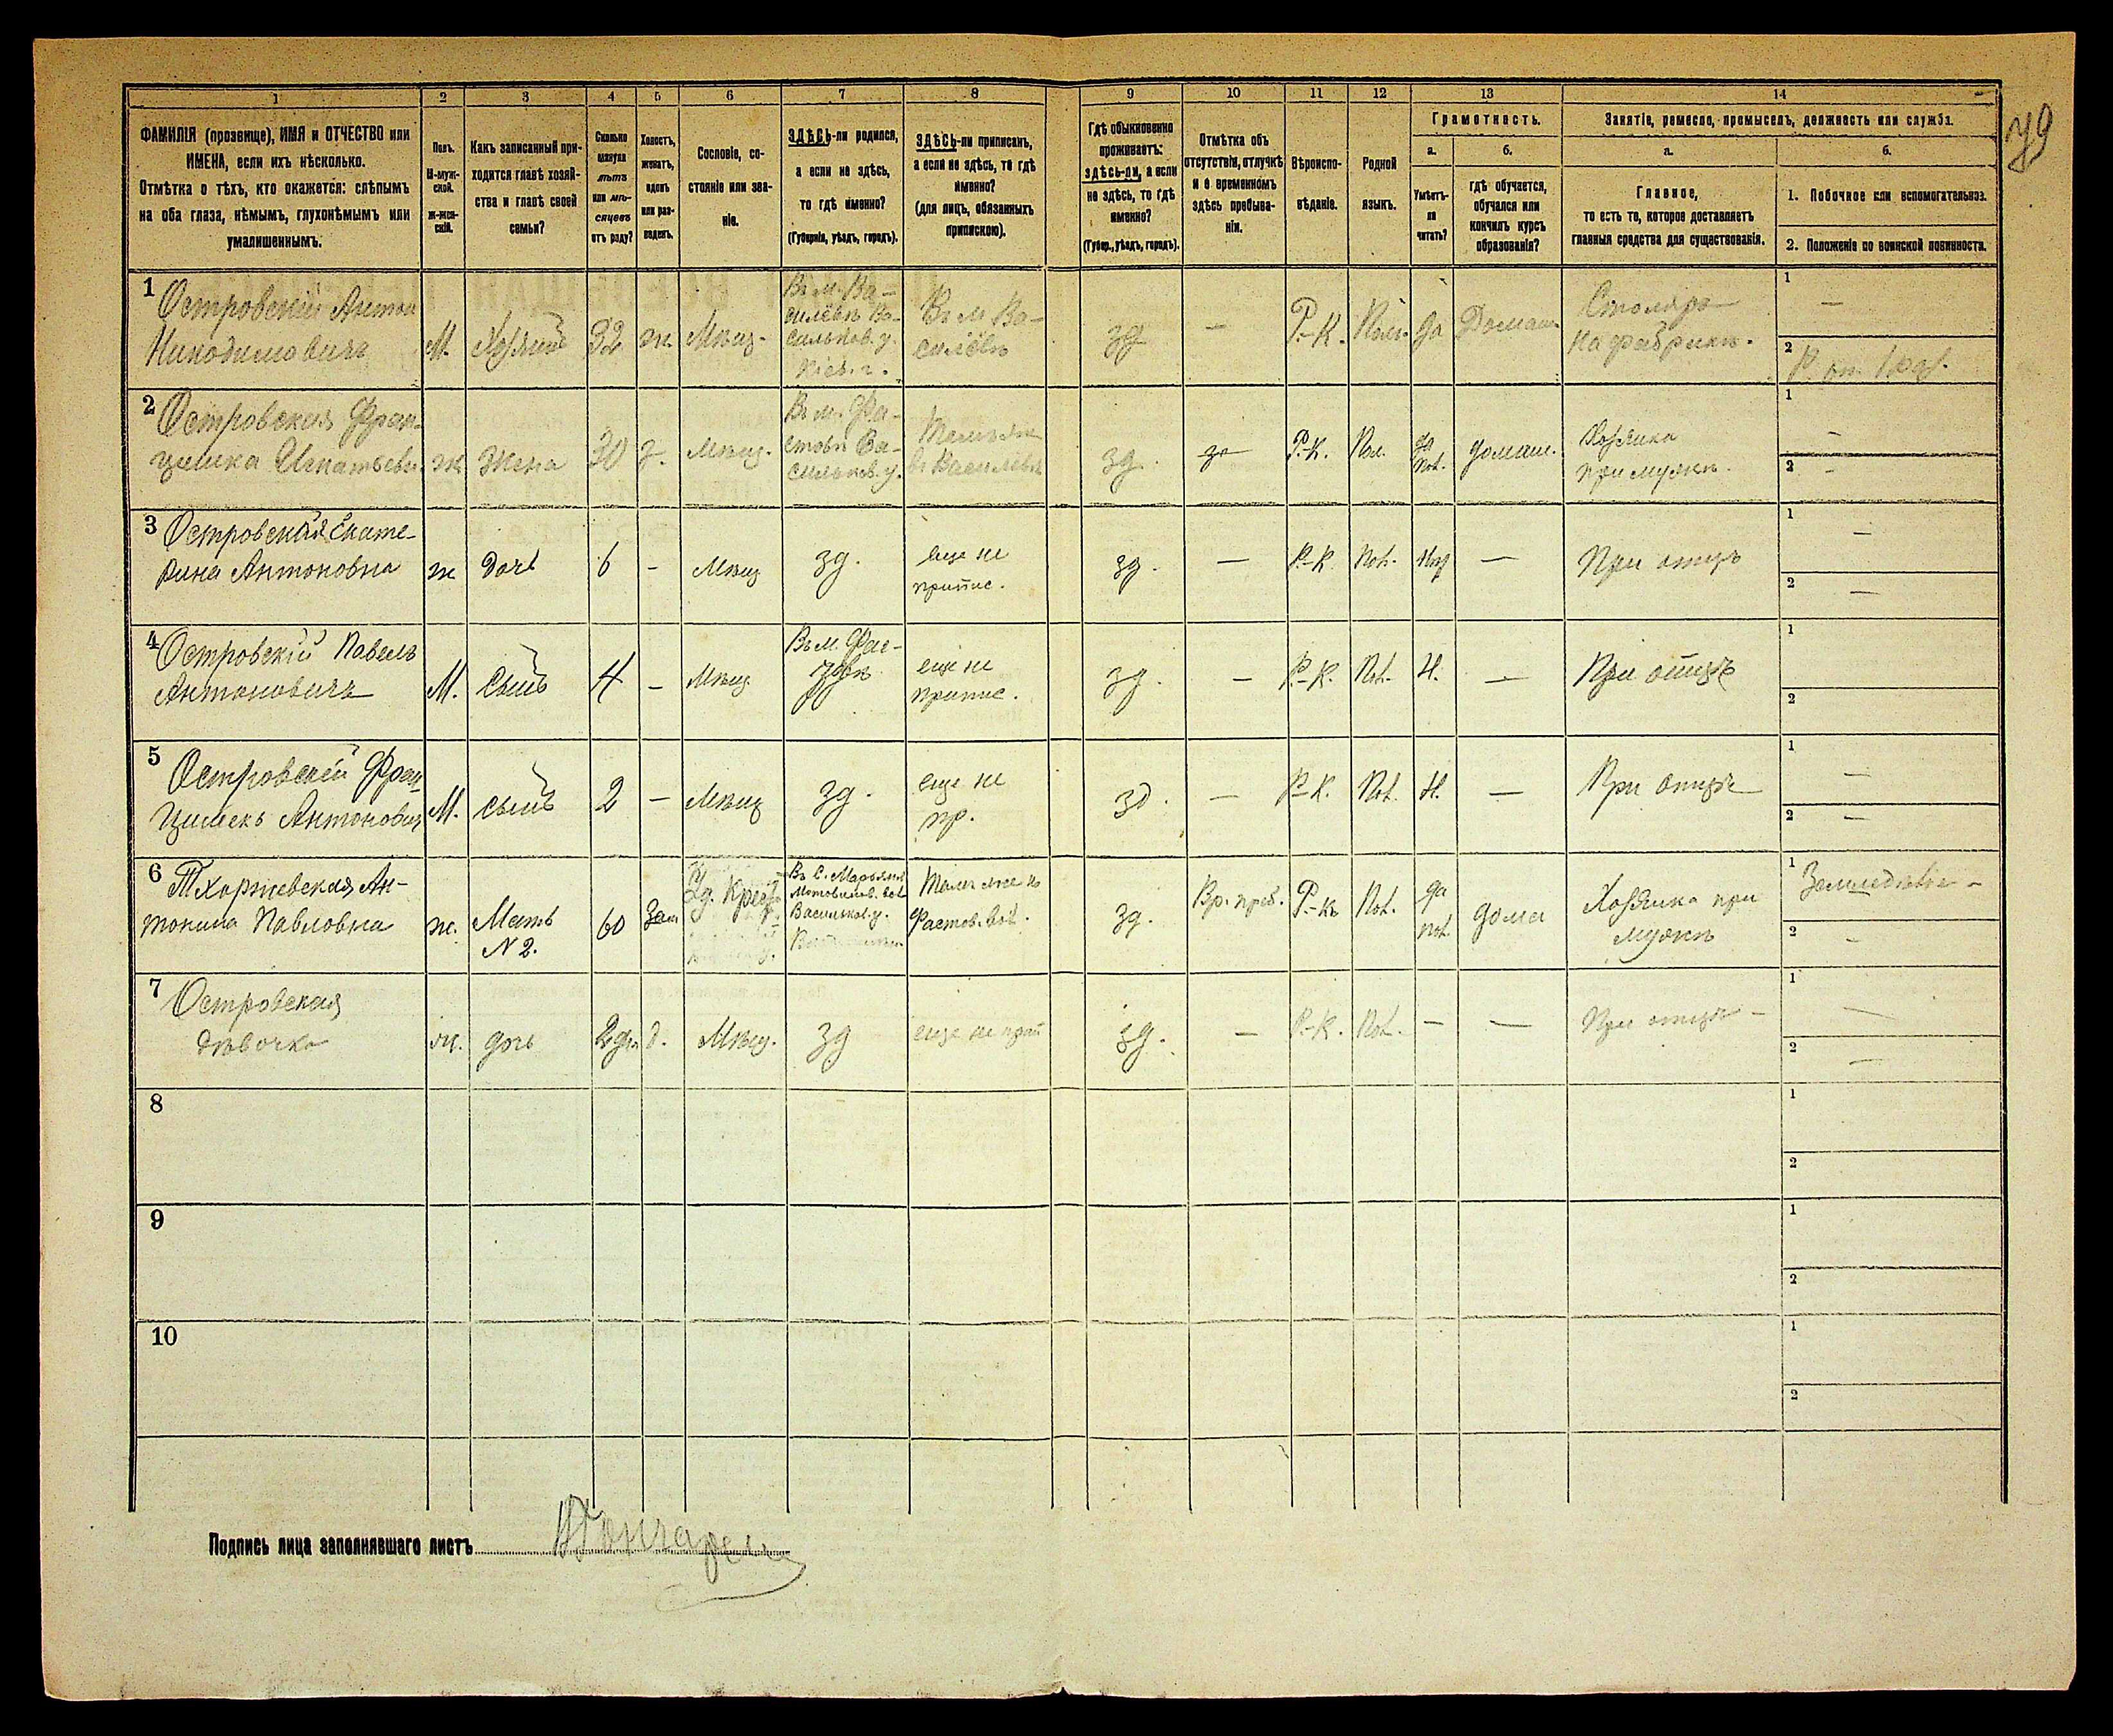 79
1
2
3
4
5
6
7
8
9
10
11
12
13
14
ФАМИЛІЯ (прозвище), ИМЯ и ОТЧЕСТВО или
ИМЕНА, если ихъ нѣсколько.
Отмѣтка о тѣхъ, кто окажется: слѣпымъ
на оба глаза, нѣмымъ, глухонѣмымъ или
умалишеннымъ.
Полъ.
М-муж-
ской.
ж-жен-
скій.
Какъ записанный при-
ходится главѣ хозяй-
ства и главѣ своей
семьи?
Сколько
минуло
лѣтъ
или мѣ-
сяцевъ
отъ роду?
Холостъ,
женатъ,
вдовъ
или раз-
веденъ.
Сословіе, со-
стояніе или зва-
ніе.
ЗДѢСЬ-ли родился,
а если не здѣсь,
то гдѣ именно?
(Губернія, уѣздъ, городъ).
ЗДѢСЬ-ли приписанъ,
а если не здѣсь, то гдѣ
именно?
(для лицъ, обязанныхъ
припискою).
Гдѣ обыкновенно
проживаетъ:
здѣсь-ли, а если
не здѣсь, то гдѣ
именно?
(Губер., уѣздъ, городъ).
Отмѣтка объ
отсутствіи, отлучкѣ
и о временномъ
здѣсь пребыва-
ніи.
Вѣроиспо-
вѣданіе.
Родной
языкъ.
Грамотность.
а.
Умѣетъ-
ли
читать?
б.
гдѣ обучается,
обучался или
кончилъ курсъ
образованія?
Занятіе, ремесло, промыселъ, должность или служба.
а.
Главное,
то есть то, которое доставляетъ
главныя средства для существованія.
б.
1. Побочное или вспомогательное.
2. Положеніе по воинской повинности.
1
Островскій Антон
Никодимовичъ
М.
Хозяинъ
32
ж.
Мѣщ.
Въ м. Ва-
силёвѣ Ва-
сильков. у.
Кіев. г.
Въ м. Ва-
силёвѣ
зд
—
Р.-К.
Пол.
да
Домаш.
Столяръ
на фабрикѣ.
1
—
2
2
Островская Фран-
цишка Игнатьевн.
ж
Жена
30
з.
Мѣщ.
Въ м. Фа-
стовѣ Ва-
сильков. у.
Тамъ же
въ Василёвѣ
зд.
Р.-К.
Пол.
да
пол.
домаш.
Хозяйка
при мужѣ.
1
—
2
—
3
Островская Екате-
рина Антоновна
ж
Дочь
6
-
Мѣщ
зд.
еще не
припис.
зд.
—
Р.-К.
Пол.
—
При отцѣ
1
—
2
—
4
Островскій Павелъ
Антоновичъ
М.
Сынъ
4
-
Мѣщ
Въ м. Фас-
товѣ
еще не
припис.
зд.
—
Р.-К.
Пол.
Н.
—
При отцѣ
1
2
5
Островскій Фран-
цишекъ Антонович
М.
сынъ
2
—
Мѣщ
зд.
еще не
пр.
зд.
—
Р.-К.
Пол.
Н.
—
При отцѣ
1
—
2
—
6
Тхоржевская Ан-
тонина Павловна
ж.
Мать
N 2.
60
Зам
Крест.
Въ с.
Мотовилов. вол
Васильков. у.
Тамъ же въ
Фастов. вол.
зд.
Вр. преб.
Р.-К.
Пол.
да
пол.
дома
Хозяйка при
мужѣ
1
Земледѣліе -
2
-
7
Островская
дѣвочка
ж.
дочь
2 дн.
д.
Мѣщ.
зд
еще не прип
зд.
—
Р.-К.
Пол.
—
—
При отцѣ -
1
—
2
—
8
1
2
9
1
2
10
1
2
Подпись лица заполнявшаго листъ